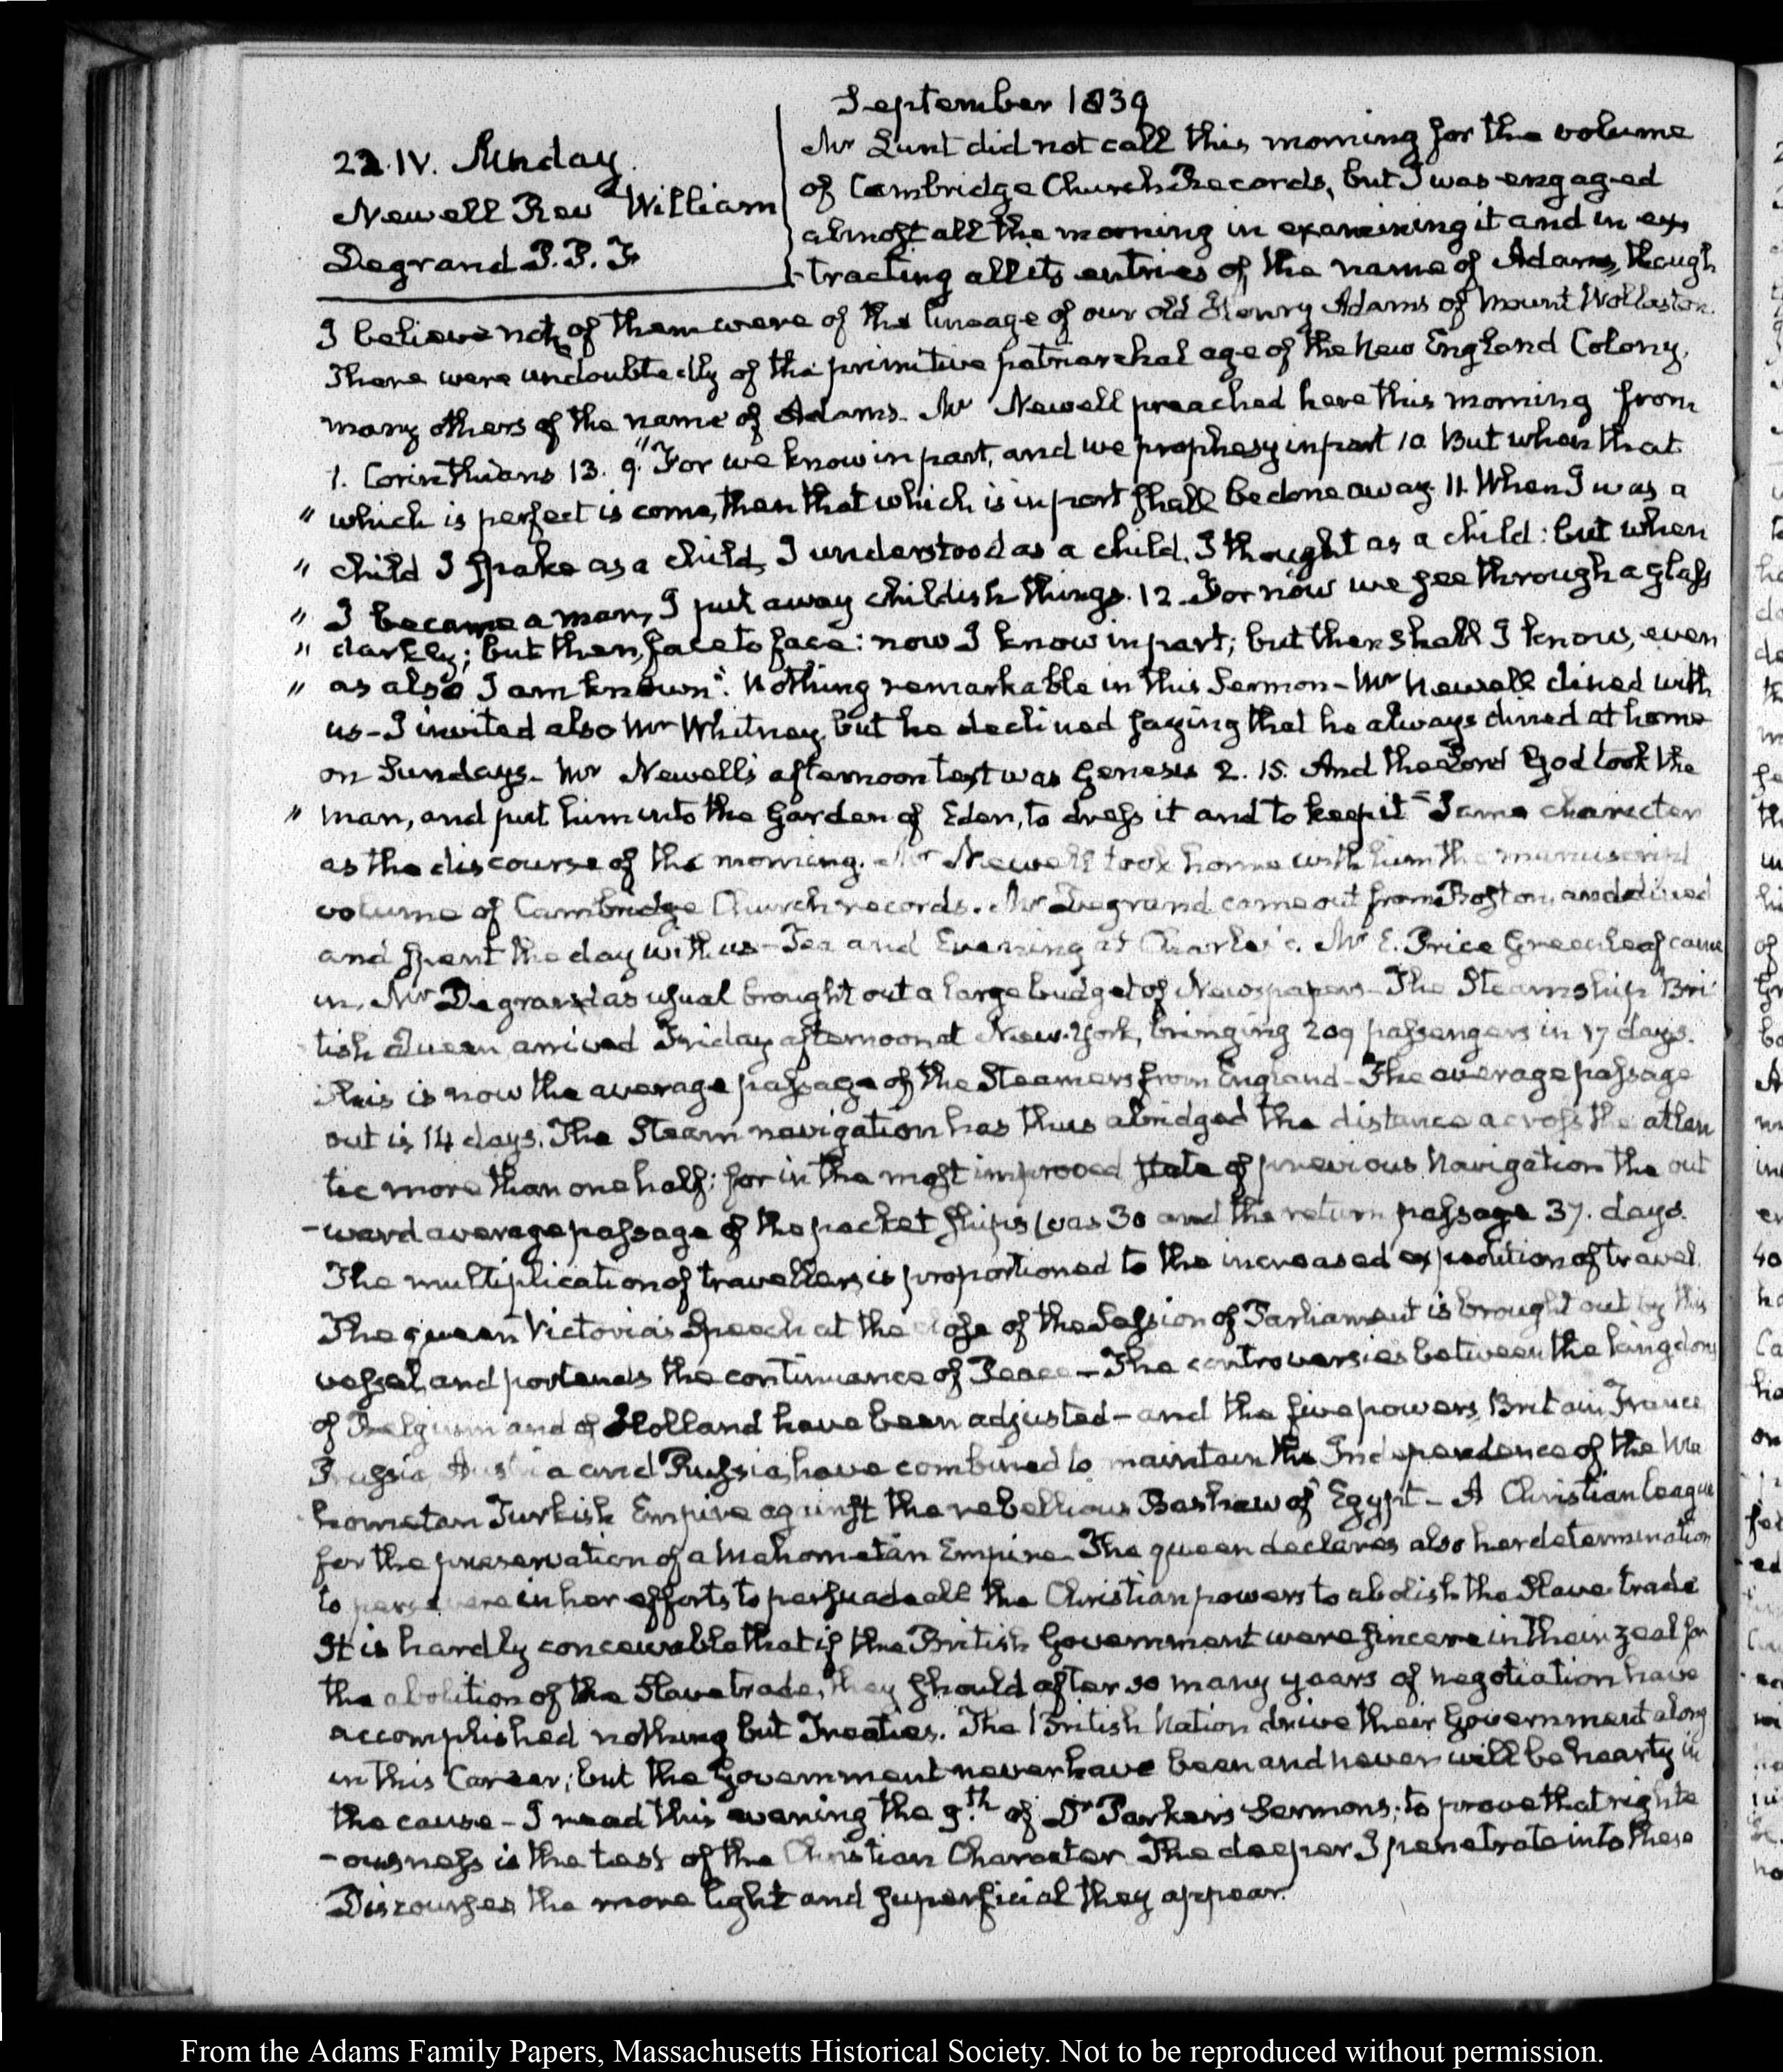 September 1839
22. IV. Sunday.
Newell Revd William
Degrand P. P. F
Mr Lunt did not call this morning for the volume
of Cambridge Church Records, but I was engaged
almost all the morning in examining it and in ex
-tracting all its entries of the name of Adams, though
I believe none of them were of the lineage of our old Henry Adams of Mount Wollaston.
There were undoubtedly of the primitive patriarchal age of the New England Colony,
many others of the name of Adams. Mr Newell preached here this morning from
1. Corinthians 13. 9. "For we know in part, and we prophesy in part 10 But when that
" which is perfect is come, then that which is in part shall be done away. 11. When I was a
" child I spake as a child, I understood as a child, I thought as a child: but when
" I became a man, I put away childish things. 12. For now we see through a glass
" darkly; but then, face to face: now I know in part; but then shall I know, even
" as also I am known". Nothing remarkable in this Sermon - Mr Newell dined with
us - I invited also Mr Whitney, but he declined saying that he always dined at home
on Sundays. Mr Newell's afternoon text was Genesis 2. 15. And the Lord God took the
" man, and put him into the Garden of Eden, to dress it and to keep it" Same character
as the discourse of the morning. Mr Newell took home with him the manuscript
volume of Cambridge Church records. Mr Degrand came out from Boston, and dined
and spent the day with us - Tea and Evening at Charles's. Mr E. Price Greenleaf came
in. Mr Degrand as usual brought out a large budget of Newspapers - The Steamship Bri
tish Queen arrived Friday afternoon at New-York, bringing 209 passengers in 17 days.
This is now the average passage of the Steamers from England - The average passage
out is 14 days. The Steam navigation has thus abridged the distance across the atlan
tic more than one half: for in the most improved state of previous Navigation the out
-ward average passage of the packet ships was 30 and the return passage 37. days.
The multiplication of travellers is proportioned to the increased expedition of travel.
The queen Victoria's Speech at the close of the Session of Parliament is brought out by this
vessel, and portends the continuance of Peace - The controversies between the kingdoms
of Belgium and of Holland have been adjusted - and the five powers, Britain, France
Prussia Austria and Russia, have combined to maintain the Independence of the Ma
hometan Turkish Empire against the rebellious Bashaw of Egypt - A Christian league
for the preservation of a Mahometan Empire. The queen declares also her determination
to persevere in her efforts to persuade all the Christian powers to abolish the Slave-trade
It is hardly conceivable that if the British Government were sincere in their zeal for
the abolition of the Slave trade, they should after so many years of negotiation have
accomplished nothing but Treaties. The British Nation drive their Government along
in this Career; but the Government never have been and never will be hearty in
the cause - I read this evening the 9.th of Dr Parker's Sermons; to prove that righte
-ousness is the test of the Christian Character. The deeper I penetrate into these
Discourses, the more light and superficial they appear.
From the Adams Family Papers, Massachusetts Historical Society. Not to be reproduced without permission.